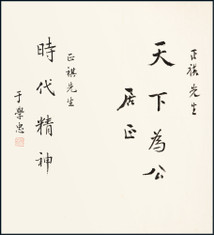 正祺先生
天下為公
居正
正祺先生
時代精神
于學忠